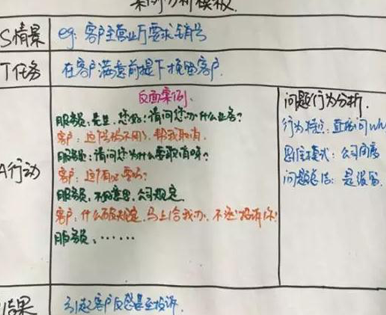 案例分析模板
S情景
eg: 客户至营业厅要求销号
T任务
在客户满意前提下挽留客户
A行动
反面案例
服务员: 先生,您好,请问您办什么业务?
客户: 这个号码不用了,帮我取消
服务员: 请问您为什么要取消呀?
客户:
服务员: 不好意思,公司规定
客户: 什么 规定,马上给我办,不然投诉你!
服务员: ……
问题行为分析
行为
模式: 公司
问题
结果
引起客户反感甚至投诉